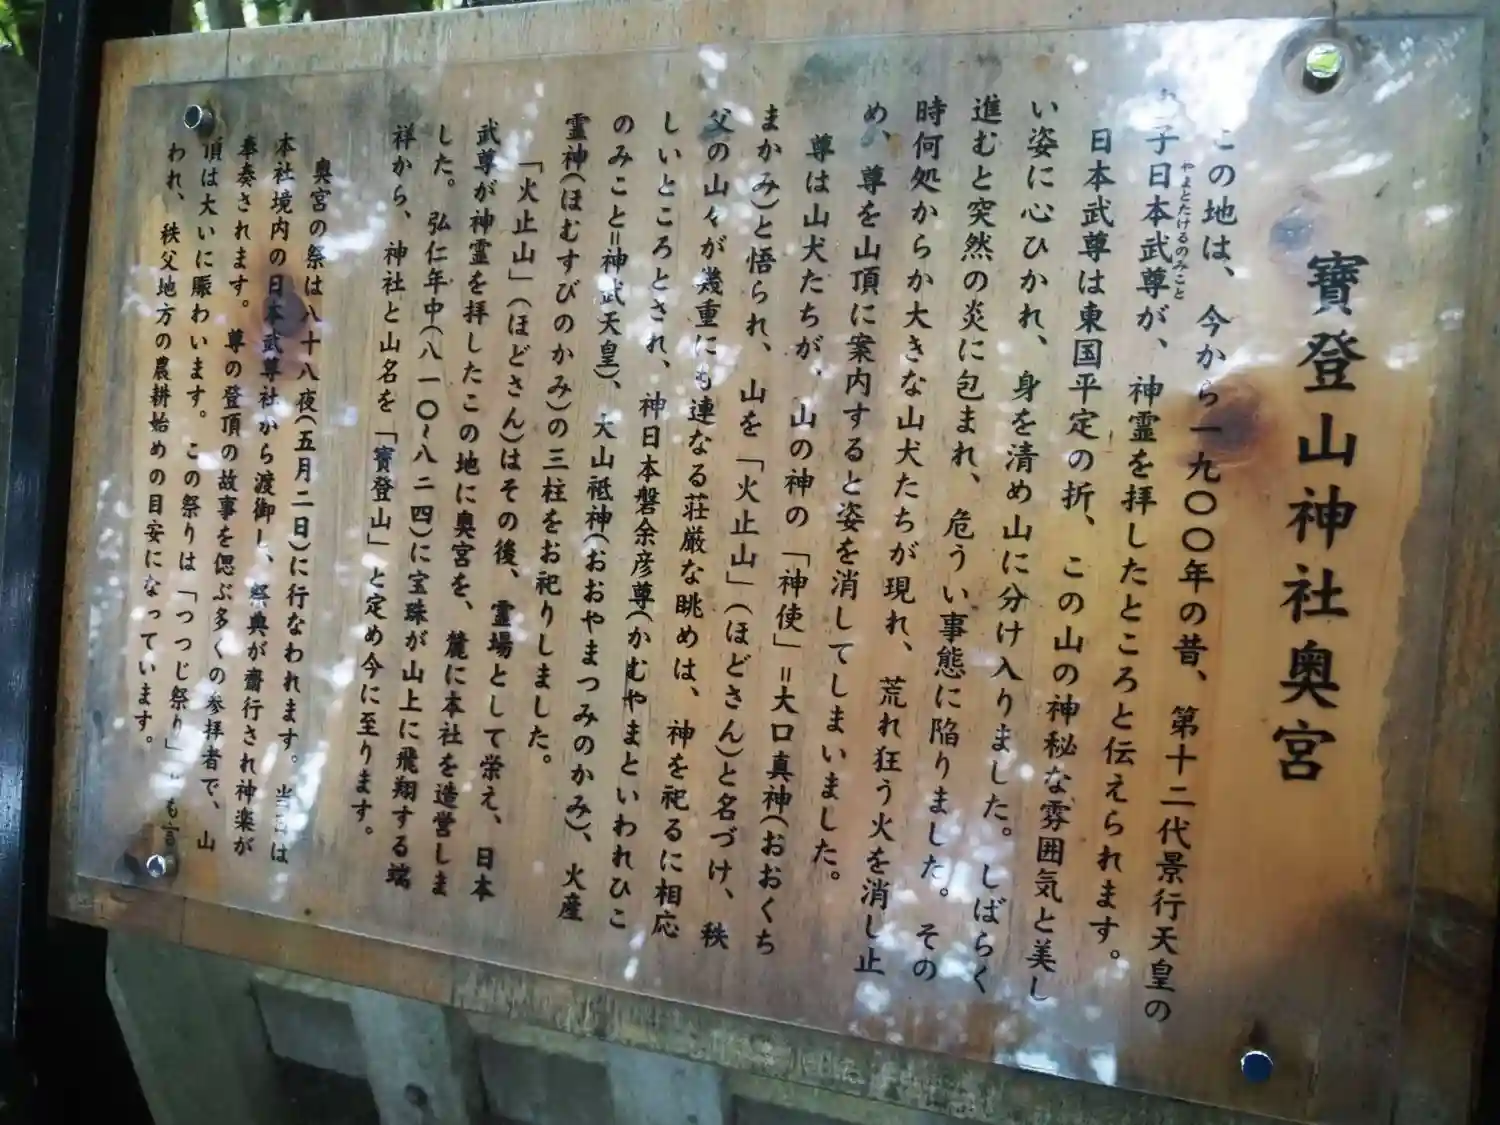 寶登山神社奥宮
この地は、今から一九〇〇年の昔、第十二代景行天皇の
子日本武尊が、神霊を拝したところと伝えられます。
やまとたけるのみこと
日本武尊は東国平定の折、この山の神秘な雰囲気と美し
い姿に心ひかれ、身を清め山に分け入りました。しばらく
進むと突然の炎に包まれ、危うい事態に陥りました。その
時何処からか大きな山犬たちが現れ、荒れ狂う火を消し止
め、尊を山頂に案内すると姿を消してしまいました。
尊は山犬たちが、山の神の「神使」=大口真神(おおくち
まかみ)と悟られ、山を「火止山」(ほどさん)と名づけ、秩
父の山々が幾重にも連なる荘厳な眺めは、神を祀るに相応
しいところとされ、神日本磐余彦尊(かむやまといわれひこ
のみこと=神武天皇)、大山祗神(おおやまつみのかみ)、火産
霊神(ほむすびのかみ)の三柱をお祀りしました。
「火止山」(ほどさん)はその後、霊場として栄え、日本
武尊が神霊を拝したこの地に奥宮を、麓に本社を造営しま
した。弘仁年中(八一〇〜八二四)に宝珠が山上に飛翔する端
祥から、神社と山名を「寳登山」と定め今に至ります。
奥宮の祭は八十八夜(五月二日)に行なわれます。当日は
本社境内の日本武尊社から渡御し、祭典が齋行され神楽が
奉奏されます。尊の登頂の故事を偲ぶ多くの参拝者で、山
頂は大いに賑わいます。この祭りは「つつじ祭り」とも言
われ、秩父地方の農耕始めの目安になっています。